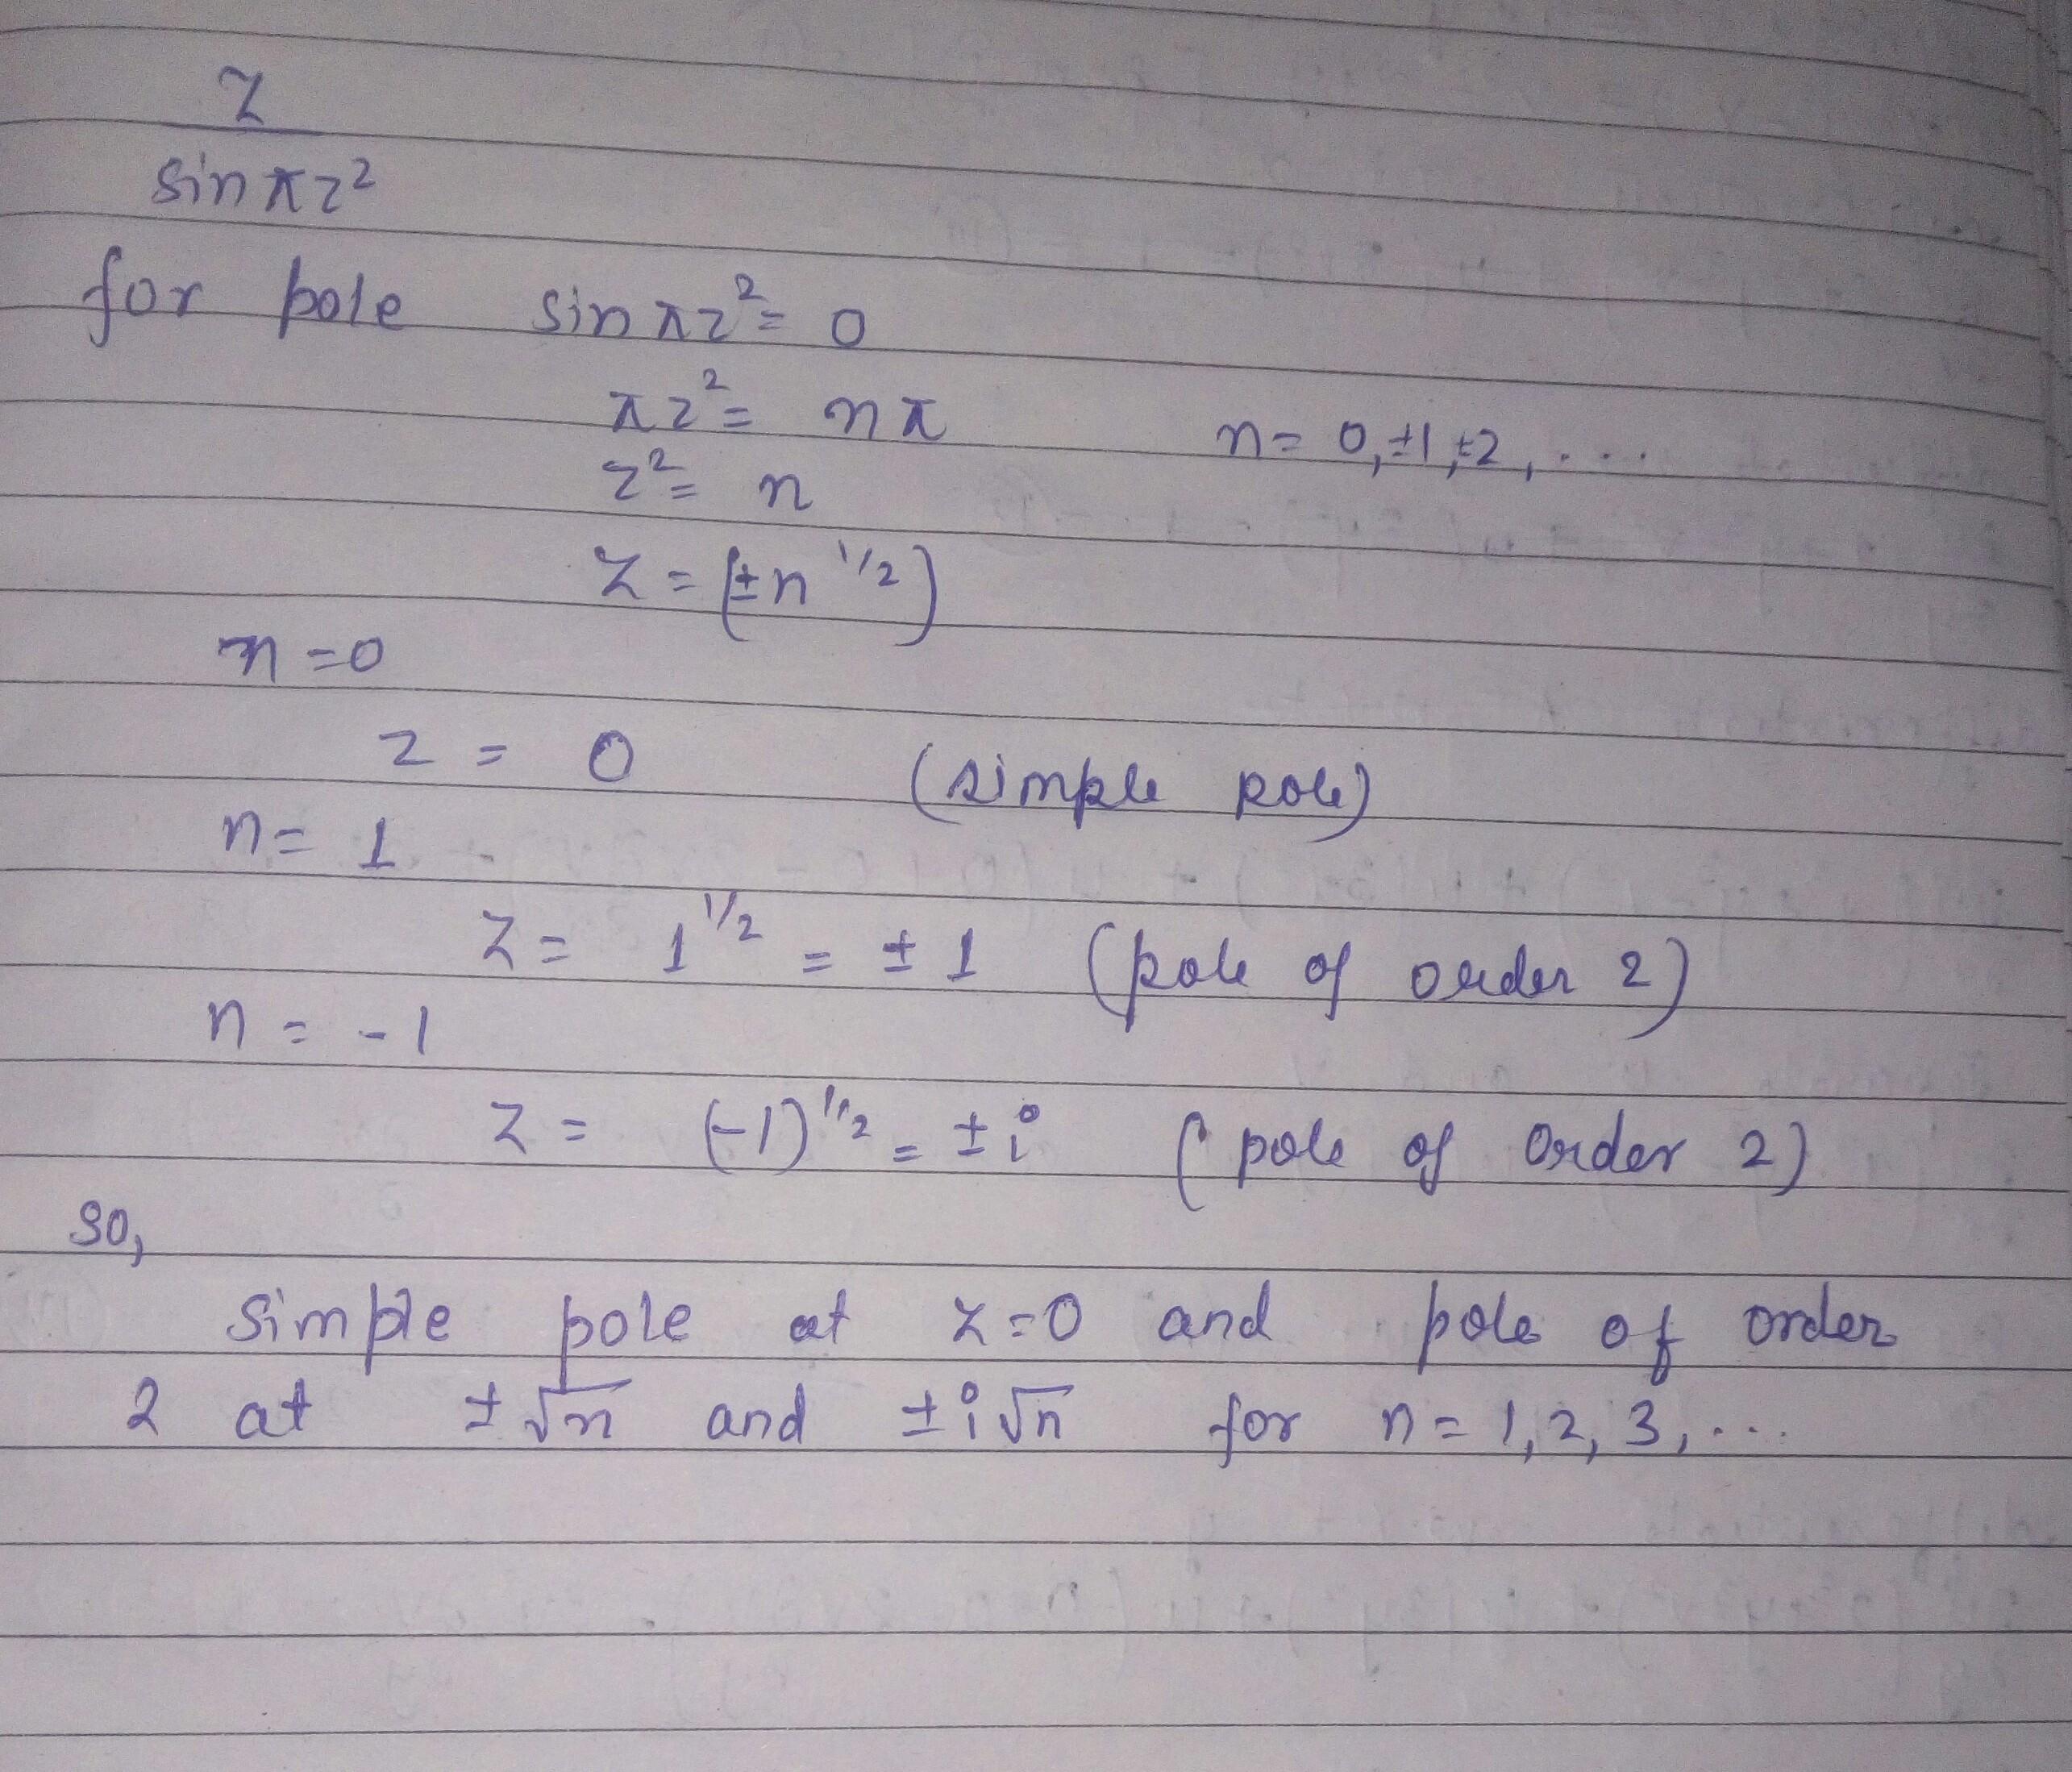 z
sin πz²
for pole sin πz² = 0
πz² = nπ n = 0, ±1, ±2, ...
z² = n
z = (±n^1/2)
n = 0
z = 0 (simple pole)
n = 1
z = 1^1/2 = ± 1 (pole of order 2)
n = -1
z = (-1)^1/2 = ± i (pole of order 2)
so,
simple pole at z = 0 and pole of order
2 at ± √n and ± i √n for n = 1, 2, 3, ...